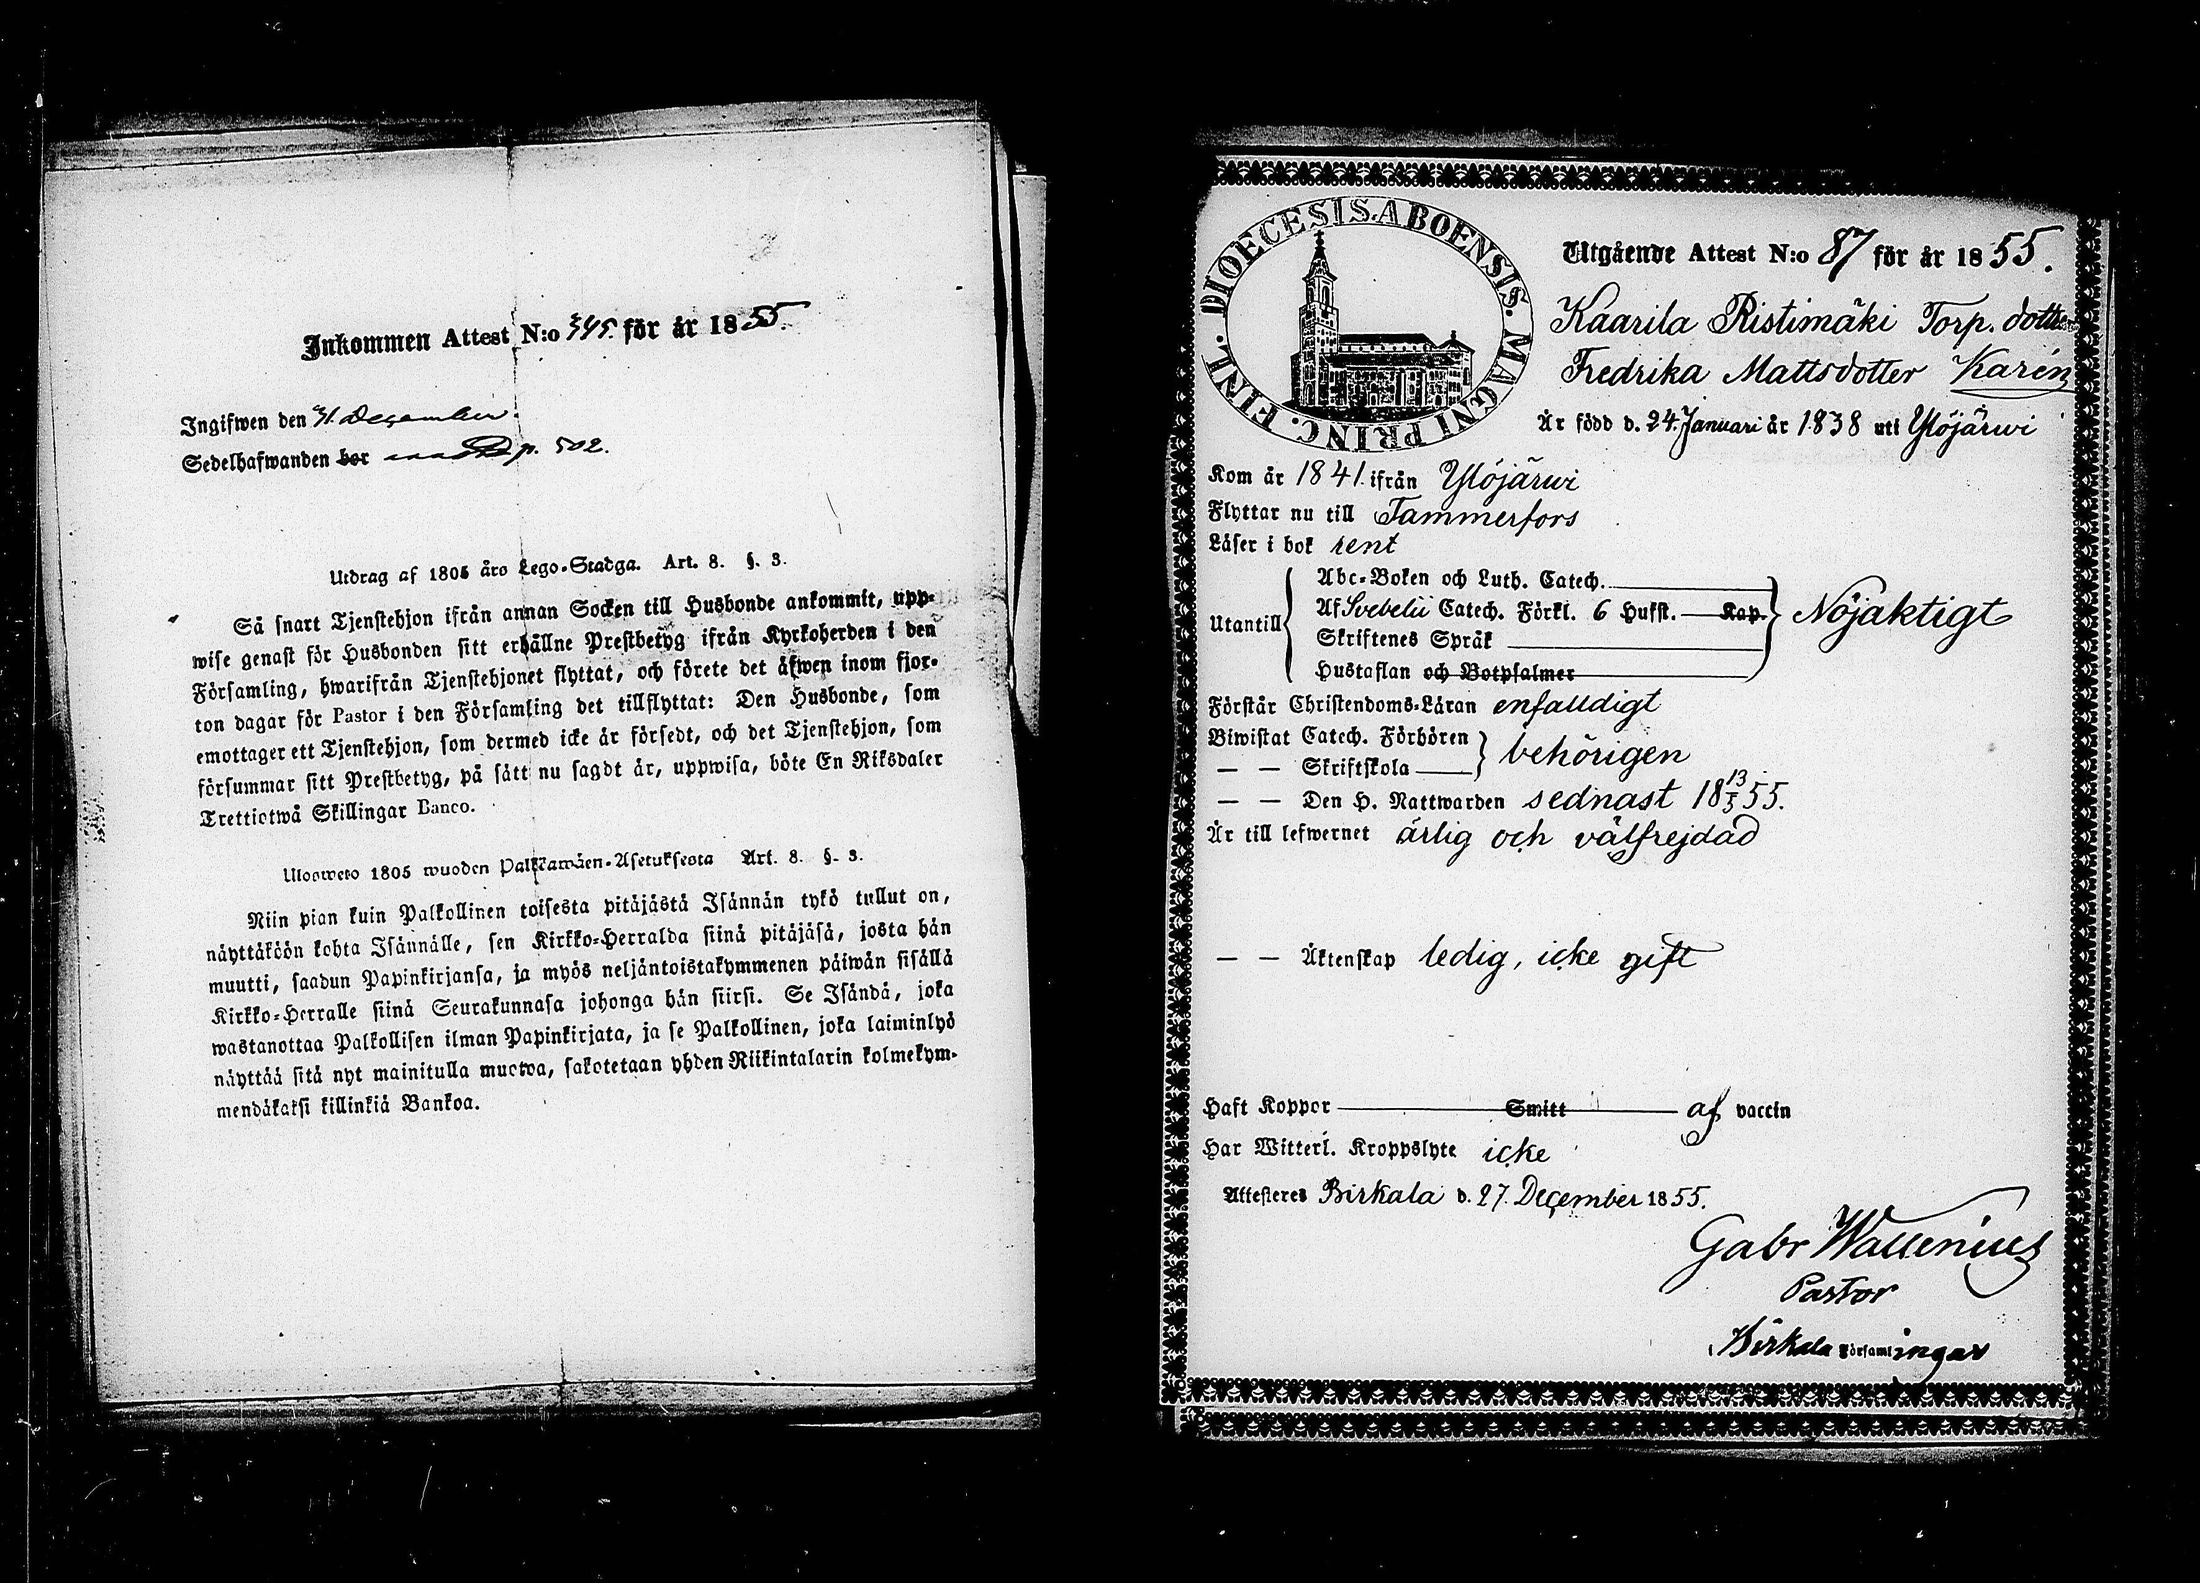 Inkommen Attest N:o 345. för år 1855.
Ingifwen den 31. December.
Sedelhafwanden bor p. 502.
Utdrag af 1805 års Lego-Stadga. Art. 8. §. 3.
Så snart Tjenstehjon ifrån annan Socken till Husbonde ankommit, upp-
wise genast för Husbonden sitt erhållne Prestbetyg ifrån Kyrkoherden i den
Församling, hwarifrån Tjenstehjonet flyttat, och förete det äfwen inom fjor-
ton dagar för Pastor i den Församling det tillflyttat: Den Husbonde, som
emottager ett Tjenstehjon, som dermed icke är försedt, och det Tjenstehjon, som
försummar sitt Prestbetyg, på sätt nu sagdt är, uppwisa, böte En Riksdaler
Trettiotwå Skillingar Banco.
Ulosweto 1805 wuoden Palkkawäen-Asetuksesta Art. 8. §. 3.
Niin pian kuin Palkollinen toisesta pitäjästä Isännän tykö tullut on,
näyttäköön kohta Isännälle, sen Kirkko-Herralda siinä pitäjäsä, josta hän
muutti, saadun Papinkirjansa, ja myös neljäntoistakymmenen päiwän sisällä
Kirkko-Herralle siinä Seurakunnasa johonga hän siirsi. Se Isändä, joka
wastanottaa Palkollisen ilman Papinkirjata, ja se Palkollinen, joka laiminlyö
näyttää sitä nyt mainitulla muotwa, sakotetaan yhden Riikintalarin kolmekym-
mendäkaksi killinkiä Bankoa.
FINL. DIOECESIS. ABOENSIS. MAGNI PRINC.
Utgående Attest N:o 87 för år 1855.
Kaarila Ristimäki Torp. dotter
Fredrika Mattsdotter Karén
Är född d. 24. Januari år 1838 uti Ylöjärwi
Kom år 1841. ifrån Ylöjärwi
Flyttar nu till Tammerfors
Läser i bok rent
Utantill
Abc-Boken och Luth. Catech.
Af Svebelii Catech. Förkl. 6 Hufst. Kap.
Skriftenes Språk
Hustaflan och Botpsalmer
Nöjaktigt
Förstår Christendoms-Läran enfalldigt
Biwistat Catech. Förhören
— — Skriftskola
behörigen
— — Den H. Nattwarden sednast 18 13/5 55.
Är till lefwernet ärlig och välfrejdad
— — Äktenskap ledig, icke gift
Haft Koppor Smitt af vaccin
Har Witterl. Kroppslyte icke
Attesteres Birkala d. 27. December 1855.
Gabr Wallenius
Pastor
i Birkala Församlingar